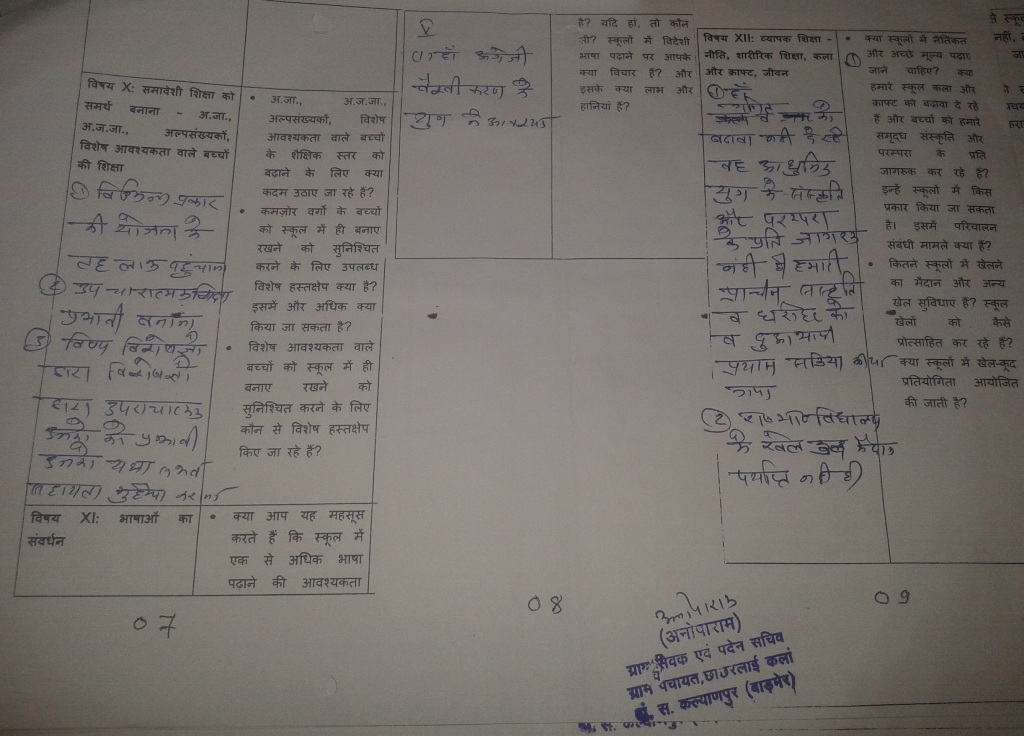 विषय X: समावेशी शिक्षा को
समर्थ बनाना - अ.जा.,
अ.ज.जा., अल्पसंख्यकों,
विशेष आवश्यकता वाले बच्चों
की शिक्षा
① विभिन्न प्रकार
की योजना के
वह लाभ पहुंचाना
② उपचारात्मक
प्रभावी बनाना
③ विषय विशेषज्ञो
द्वारा
द्वारा
को प्रभावी
सहायता मुहैया
विषय XI: भाषाओं का
संवर्धन
• अ.जा., अ.ज.जा.,
अल्पसंख्यकों, विशेष
आवश्यकता वाले बच्चों
के शैक्षिक स्तर को
बढ़ाने के लिए क्या
कदम उठाए जा रहे हैं?
• कमज़ोर वर्गो के बच्चों
को स्कूल में ही बनाए
रखने को सुनिश्चित
करने के लिए उपलब्ध
विशेष हस्तक्षेप क्या है?
इसमें और अधिक क्या
किया जा सकता है?
• विशेष आवश्यकता वाले
बच्चों को स्कूल में ही
बनाए रखने को
सुनिश्चित करने के लिए
कौन से विशेष हस्तक्षेप
किए जा रहे हैं?
• क्या आप यह महसूस
करते हैं कि स्कूल में
एक से अधिक भाषा
पढ़ाने की आवश्यकता
07
हाँ अंग्रेजी
वैश्वीकरण के
युग में आवश्यक
है? यदि हां, तो कौन
सी? स्कूलों में विदेशी
भाषा पढ़ाने पर आपके
क्या विचार हैं? और
इसके क्या लाभ और
हानियां हैं?
08
विषय XII: व्यापक शिक्षा -
नीति, शारीरिक शिक्षा, कला
और क्राफ्ट, जीवन
① हाँ
बढावा नही दे रहे
वह आधुनिक
युग के संस्कृति
और परम्परा
के प्रति जागरूक
नही है हमारी
प्राचीन संस्कृति
व धरोहर को
व
प्रयास
जाये
②
के खेल कूद के
पर्याप्त नही है
• क्या स्कूलों में नैतिकता
और अच्छे मूल्य पढ़ाए
जाने चाहिए? क्या
हमारे स्कूल कला और
क्राफ्ट को बढ़ावा दे रहे
हैं और बच्चों को हमारे
समृद्ध संस्कृति और
परम्परा के प्रति
जागरूक कर रहे हैं?
इन्हें स्कूलों में किस
प्रकार किया जा सकता
है। इसमें परिचालन
संबंधी मामले क्या हैं?
• कितने स्कूलों में खेलने
का मैदान और अन्य
खेल सुविधाएं हैं? स्कूल
खेलों को कैसे
प्रोत्साहित कर रहे हैं?
क्या स्कूलों में खेल-कूद
प्रतियोगिता आयोजित
की जाती है?
09
(अनोपाराम)
ग्राम सेवक एवं पदेन सचिव
ग्राम पंचायत,छाउरलाई कलां
पं. स. कल्याणपुर (बाड़मेर)